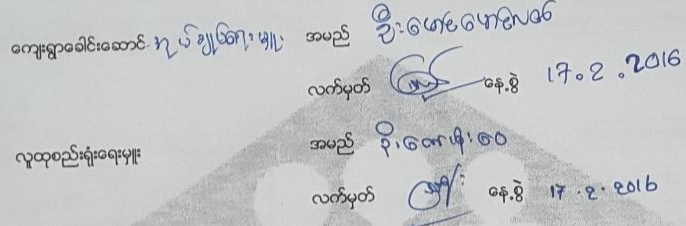 ကျေးရွာခေါင်းဆောင် အုပ်ချုပ်ရေးမှူး အမည်
လက်မှတ် နေ့စွဲ 17.2.2016
လူထုစည်းရုံးရေးမှူး အမည်
လက်မှတ် နေ့စွဲ 17.2.2016